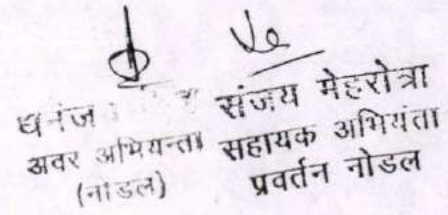 धनंज
अवर अभियन्ता
(नोडल)
संजय मेहरोत्रा
सहायक अभियंता
प्रवर्तन नोडल